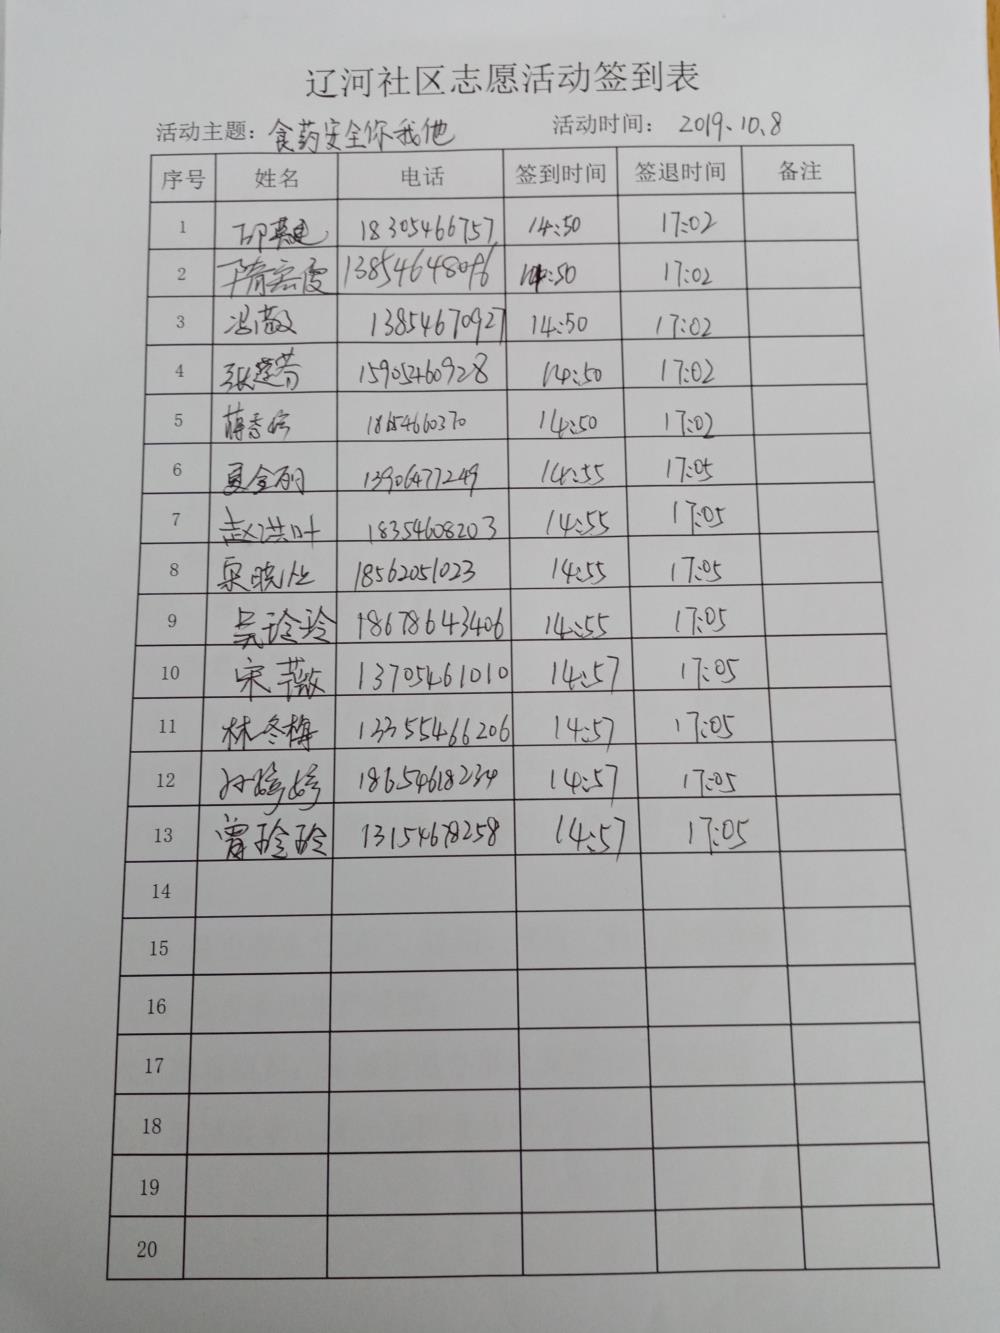 辽河社区志愿活动签到表
活动主题：食药安全你我他 活动时间： 2019.10.8
序号 姓名 电话 签到时间 签退时间 备注
1 18305466757 14:50 17:02
2 14:50 17:02
3 冯敬 13854670927 14:50 17:02
4 15905460928 14:50 17:02
5 14:50 17:02
6 夏金丽 13906477249 14:55 17:05
7 赵洪叶 18354608203 14:55 17:05
8 18562051023 14:55 17:05
9 吴玲玲 18678643406 14:55 17:05
10 宋薇 13705461010 14:57 17:05
11 林冬梅 13355466206 14:57 17:05
12 孙婷婷 18654618234 14:57 17:05
13 曾玲玲 13154678258 14:57 17:05
14
15
16
17
18
19
20